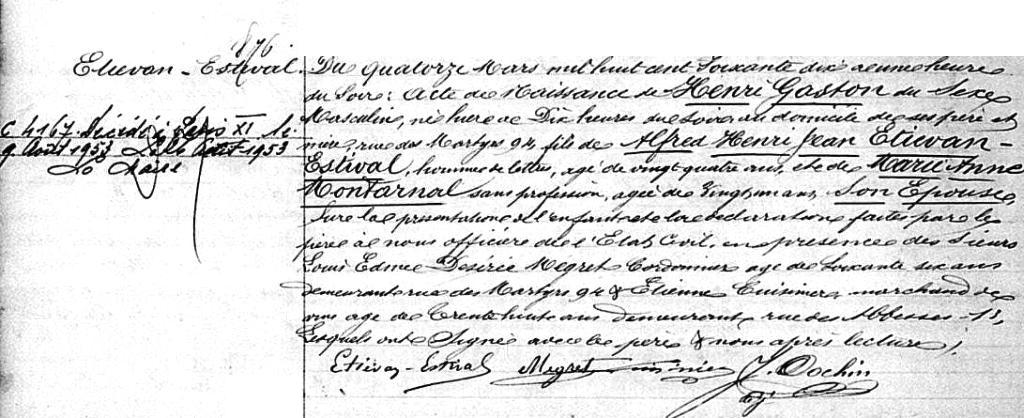 876
Etievan-Estival.
C 4167 Décédé à Paris XI le
9 Août 1953 Le 14 Août 1953
Le Maire
Du quatorze Mars mil huit cent soixante dix a une heure
du Soir: Acte de Naissance de Henri Gaston du Sexe
Masculin, né hier a Dix heures du soir au domicile de ses père et
mère, rue des Martyrs 94 fils de Alfred Henri Jean Etievan-
Estival, homme de lettres, agé de vingt quatre ans, et de Marie Anne
Montarnal sans profession, agée de vingt un ans, Son Epouse,
Sur la présentation de l'enfant et la declaration faites par le
père à nous officier de l'Etat Civil, en présence des Sieurs
Louis Edmée Desirée Megret Cordonnier agé de soixante six ans
demeurant rue des Martyrs 94 & Etienne Cuisinier marchand de
vins agé de Trente huit ans demeurant rue des Abbesses
Lesquels ont Signé avec le père & nous après lecture,
Etievan-Estival Megret Cuisinier J. Cochin